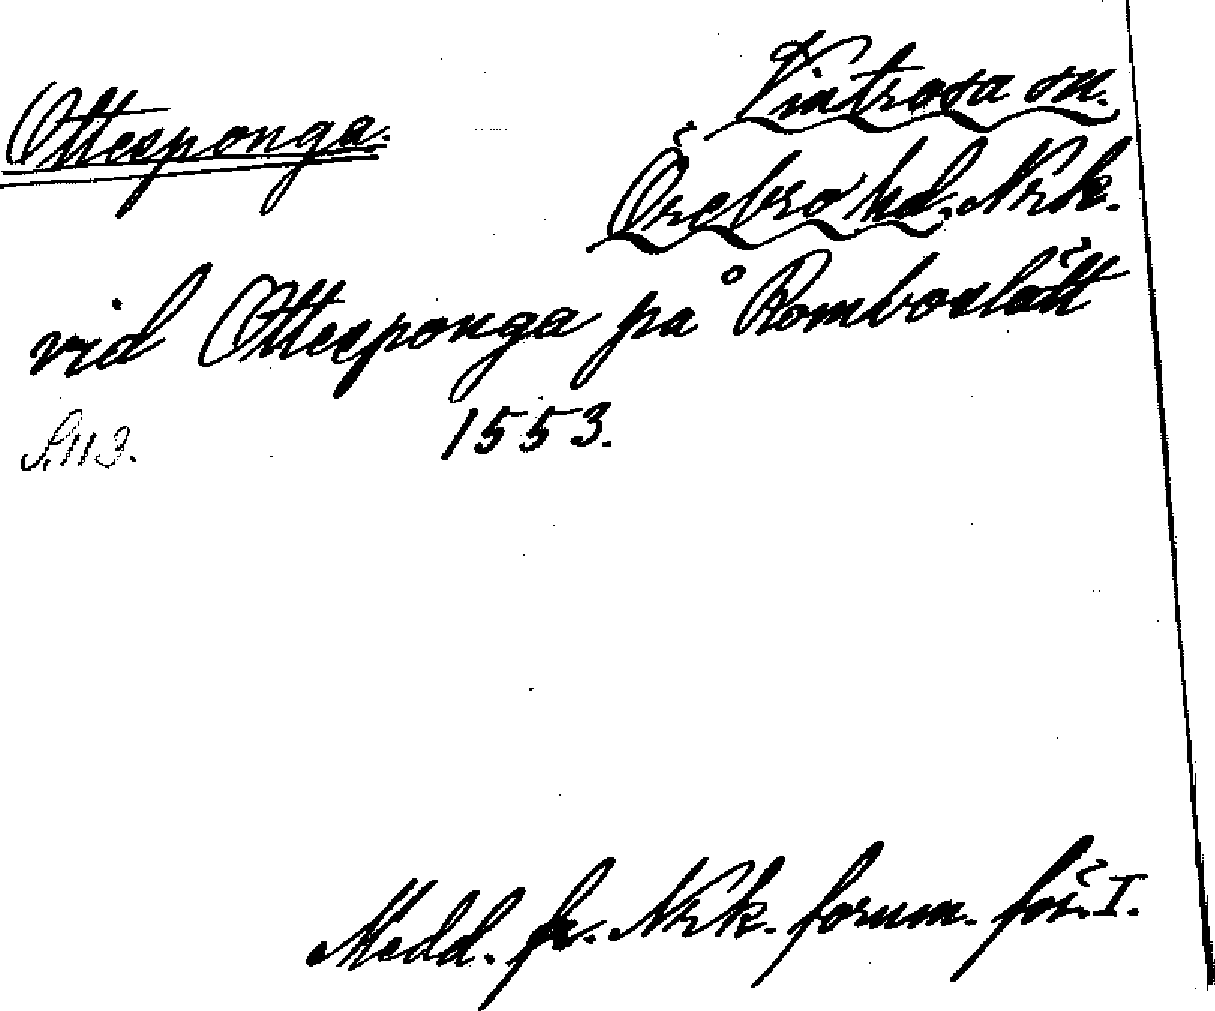 Ottesponga.
Vintrosa sn.
Örebro hd. Nrk.
vid Ottesponga på Romboslätt
1553.
S. 113.
Medd. fr. Nrk. fornm. för. I.